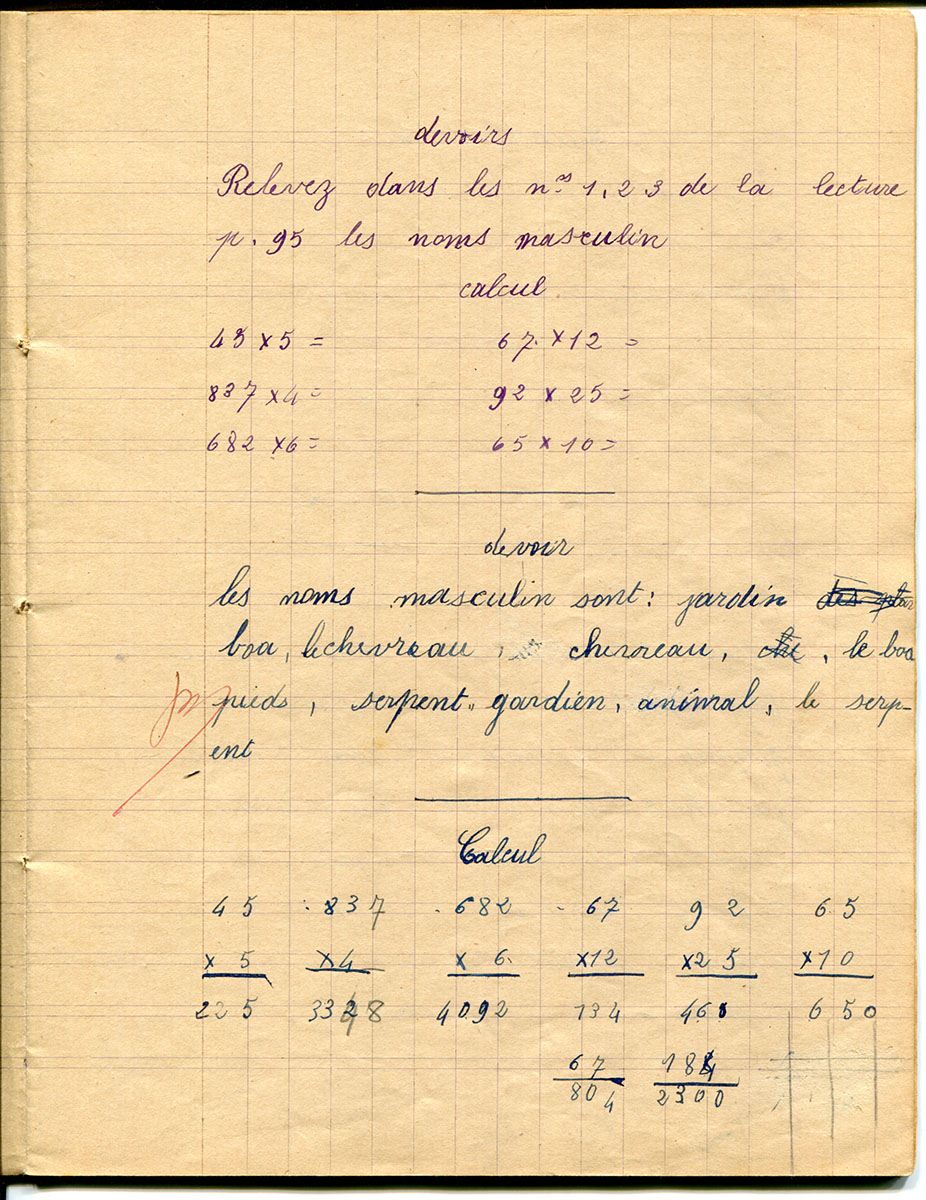 devoirs
Relevez dans les nos 1, 2 3 de la lecture
p. 95 les noms masculin
calcul
45 x 5 = 67 x 12 =
837 x 4 = 92 x 25 =
682 x 6 = 65 x 10 =
devoir
les noms masculin sont : jardin
boa, le chevreau, chevreau, , le boa
pieds, serpent, gardien, animal, le serp-
ent
Calcul
45 837 682 67 92 65
x 5 x 4 x 6 x 12 x 25 x 10
225 3348 4092 134 460 650
67 184
804 2300